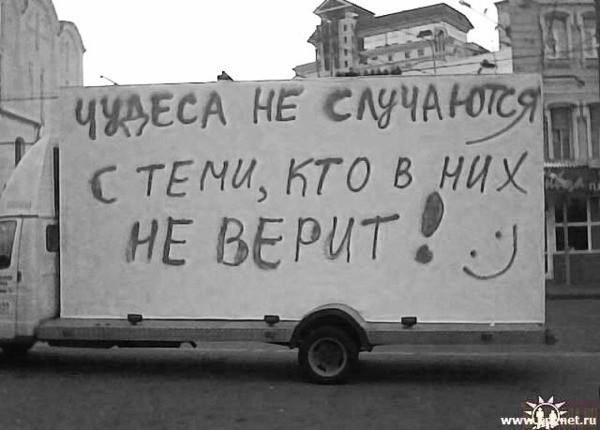 ЧУДЕСА НЕ СЛУЧАЮТСЯ
С ТЕМИ, КТО В НИХ
НЕ ВЕРИТ! :-)